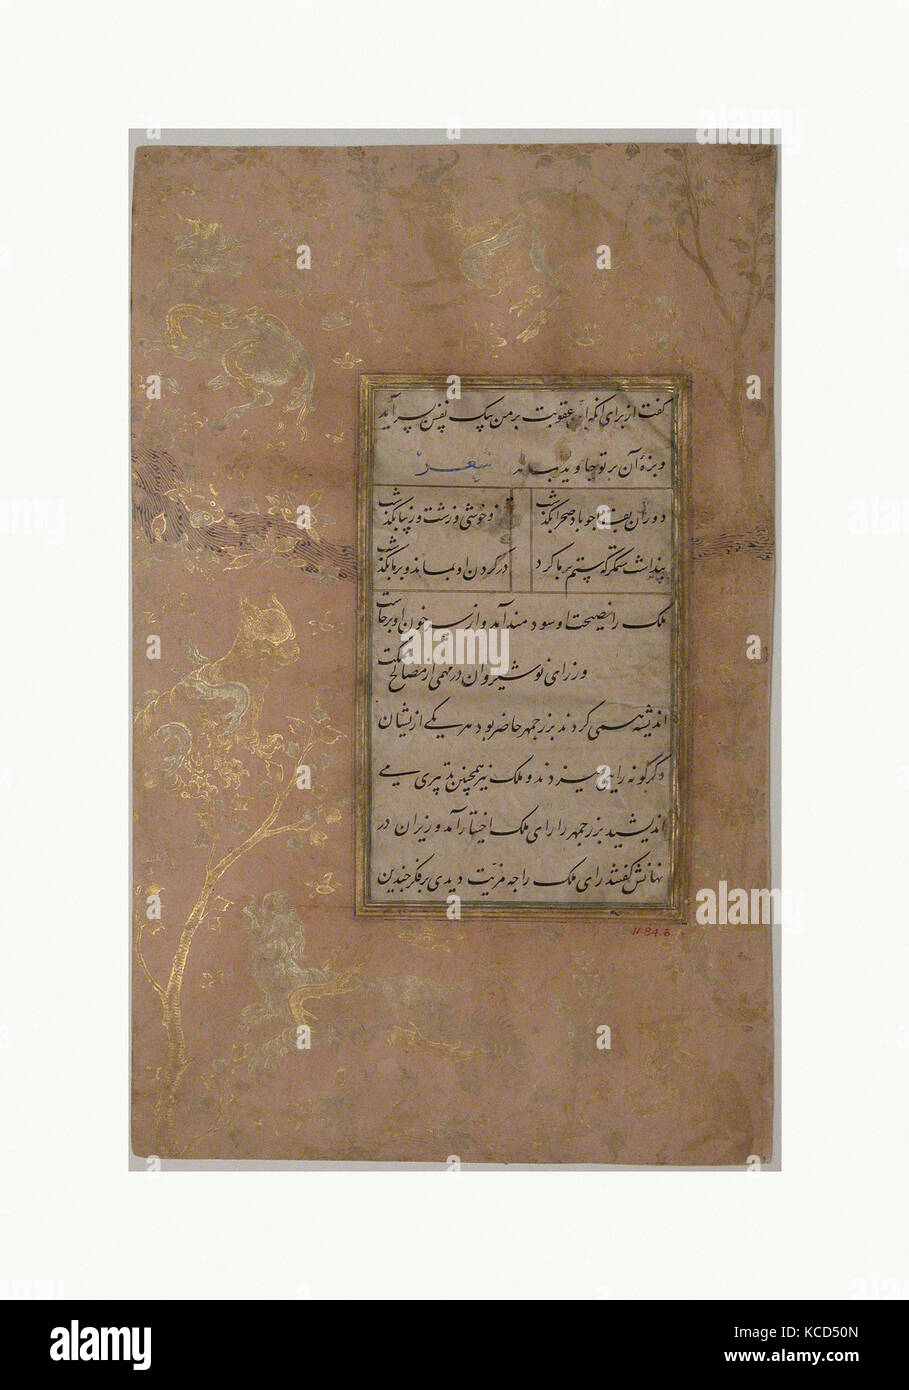 گفت از برای آنکه این عقوبت بر من بیک نفس بسر آید
و بزۀ آن بر تو جاوید بماند شعر
دوران بقا چو باد صحرا بگذشت
و خوشی و زشت و زیبا بگذشت
پنداشت ستمگر که ستم بر ما کرد
در گردن او بماند و بر ما بگذشت
ملک را نصیحت او سودمند آمد و از سر خون او برخاست
وزرای نوشیروان در مهمی از مصالح مملکت
اندیشه همی کردند بزرجمهر حاضر بود هر یکی از یشان
دگر گونه رایی همی زدند و ملک نیز همچنین تدبیری می
اندیشید بزرجمهر را رای ملک اختیار آمد وزیران در
نهانش گفتند رای ملک را چه مزیت دیدی بر فکر چندین
1184.6
alamy
Image ID: KCD50N
www.alamy.com